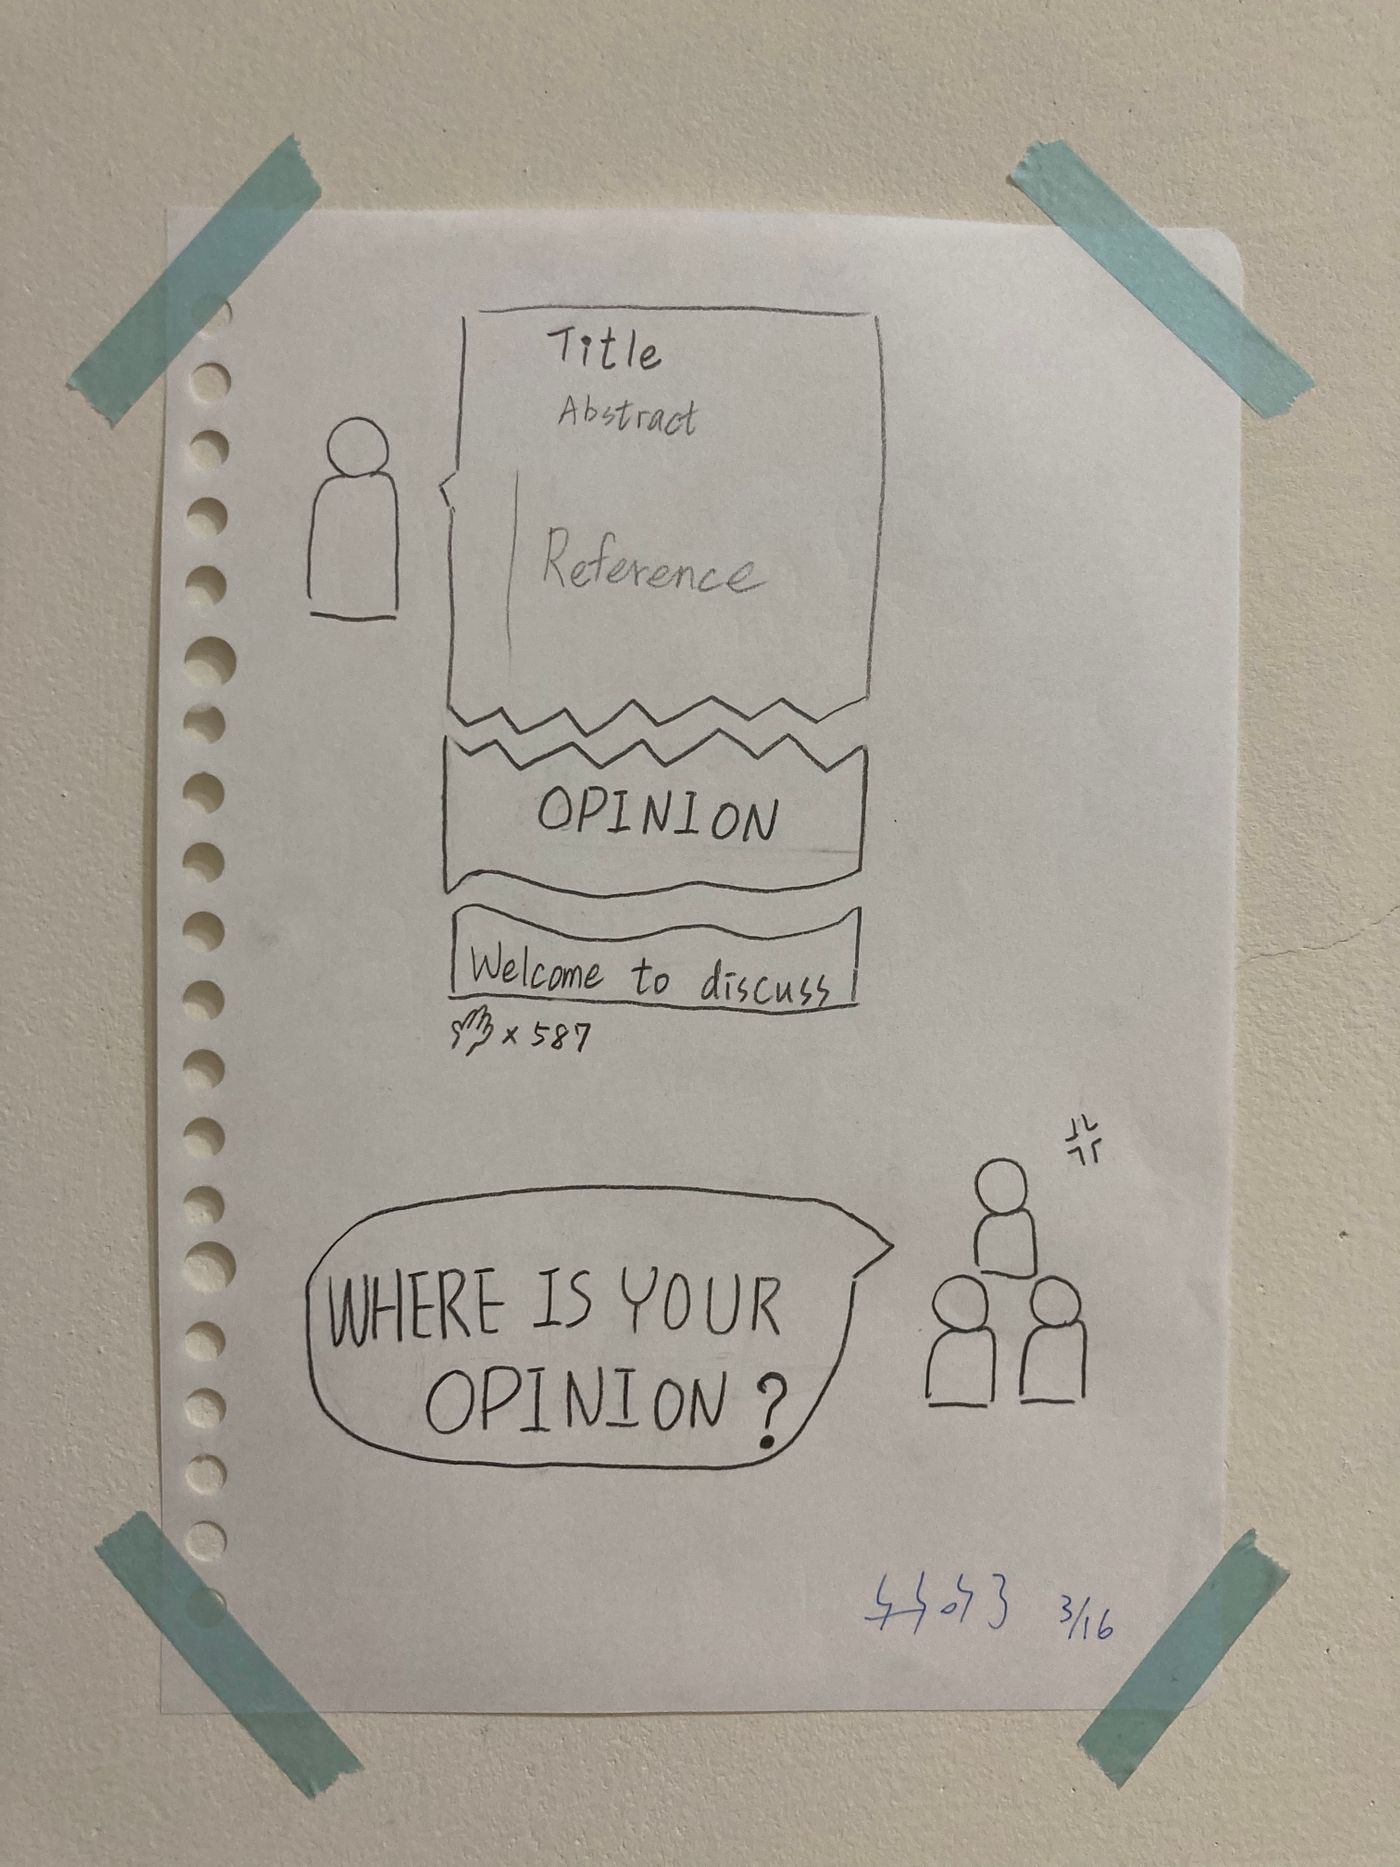 Title
Abstract
Reference
OPINION
Welcome to discuss
x 587
WHERE IS YOUR
OPINION?
3/16